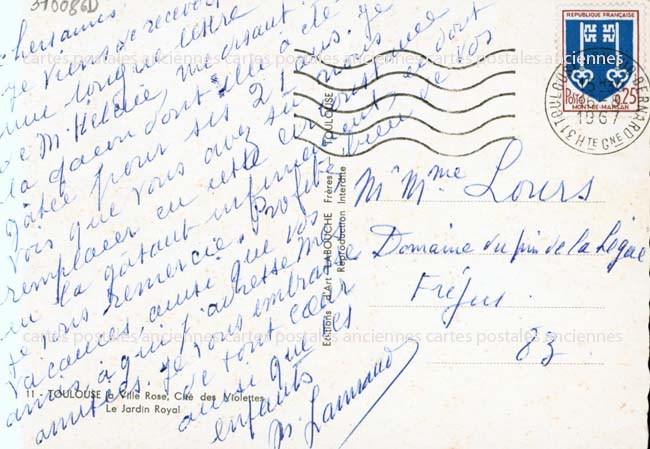 310086D
Chers amis,
Je viens de recevoir
une longue lettre
de Mme Hélène, me disant
la façon dont elle a été
gâtée pour ses 21 ans. Je
vois que vous avez su nous
remplacer en cette circonstance
en la gâtant infiniment, ce dont
je vous remercie. Profitez bien de vos
vacances, ainsi que vos
amis à qui j'adresse mes
amitiés. Je vous embrasse
de tout cœur
ainsi que les
enfants
11 - TOULOUSE la Ville Rose, Cité des Violettes
Le Jardin Royal
Editions d'Art LABOUCHE Frères — TOULOUSE
Reproduction Interdite
REPUBLIQUE FRANÇAISE
Postes
0,25
MONT-DE-MARSAN
TOULOUSE
BERNARD
1967
31 HTE GNE
Mr Mme Lours
Domaine du pin de la Légue
Fréjus
83
cartes postales anciennes cartes postales anciennes cartes postales anciennes
cartes postales anciennes cartes postales anciennes cartes postales anciennes